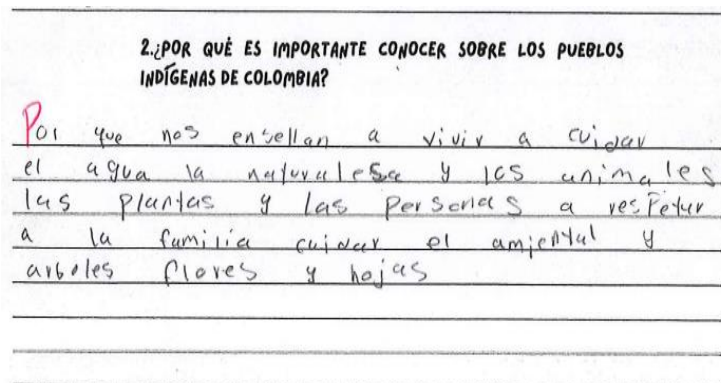 2.¿POR QUÉ ES IMPORTANTE CONOCER SOBRE LOS PUEBLOS
INDÍGENAS DE COLOMBIA?
Por que nos ensellan a vivir a cuidar
el agua la naturalesa y los animales
las plantas y las personas a respetar
a la familia cuidar el amiental y
arboles flores y hojas